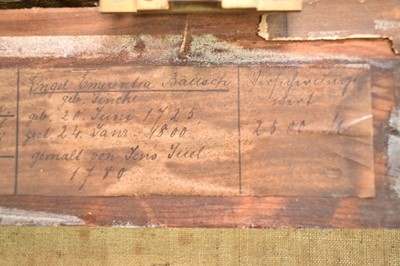 Engel Emerentia Bautsch
geb. Jencke
geb. 20. Juni 1725
gest. 24. Janr. 1800
gemalt von Jens Juel
1780
Versicherungs
wert
2500 M